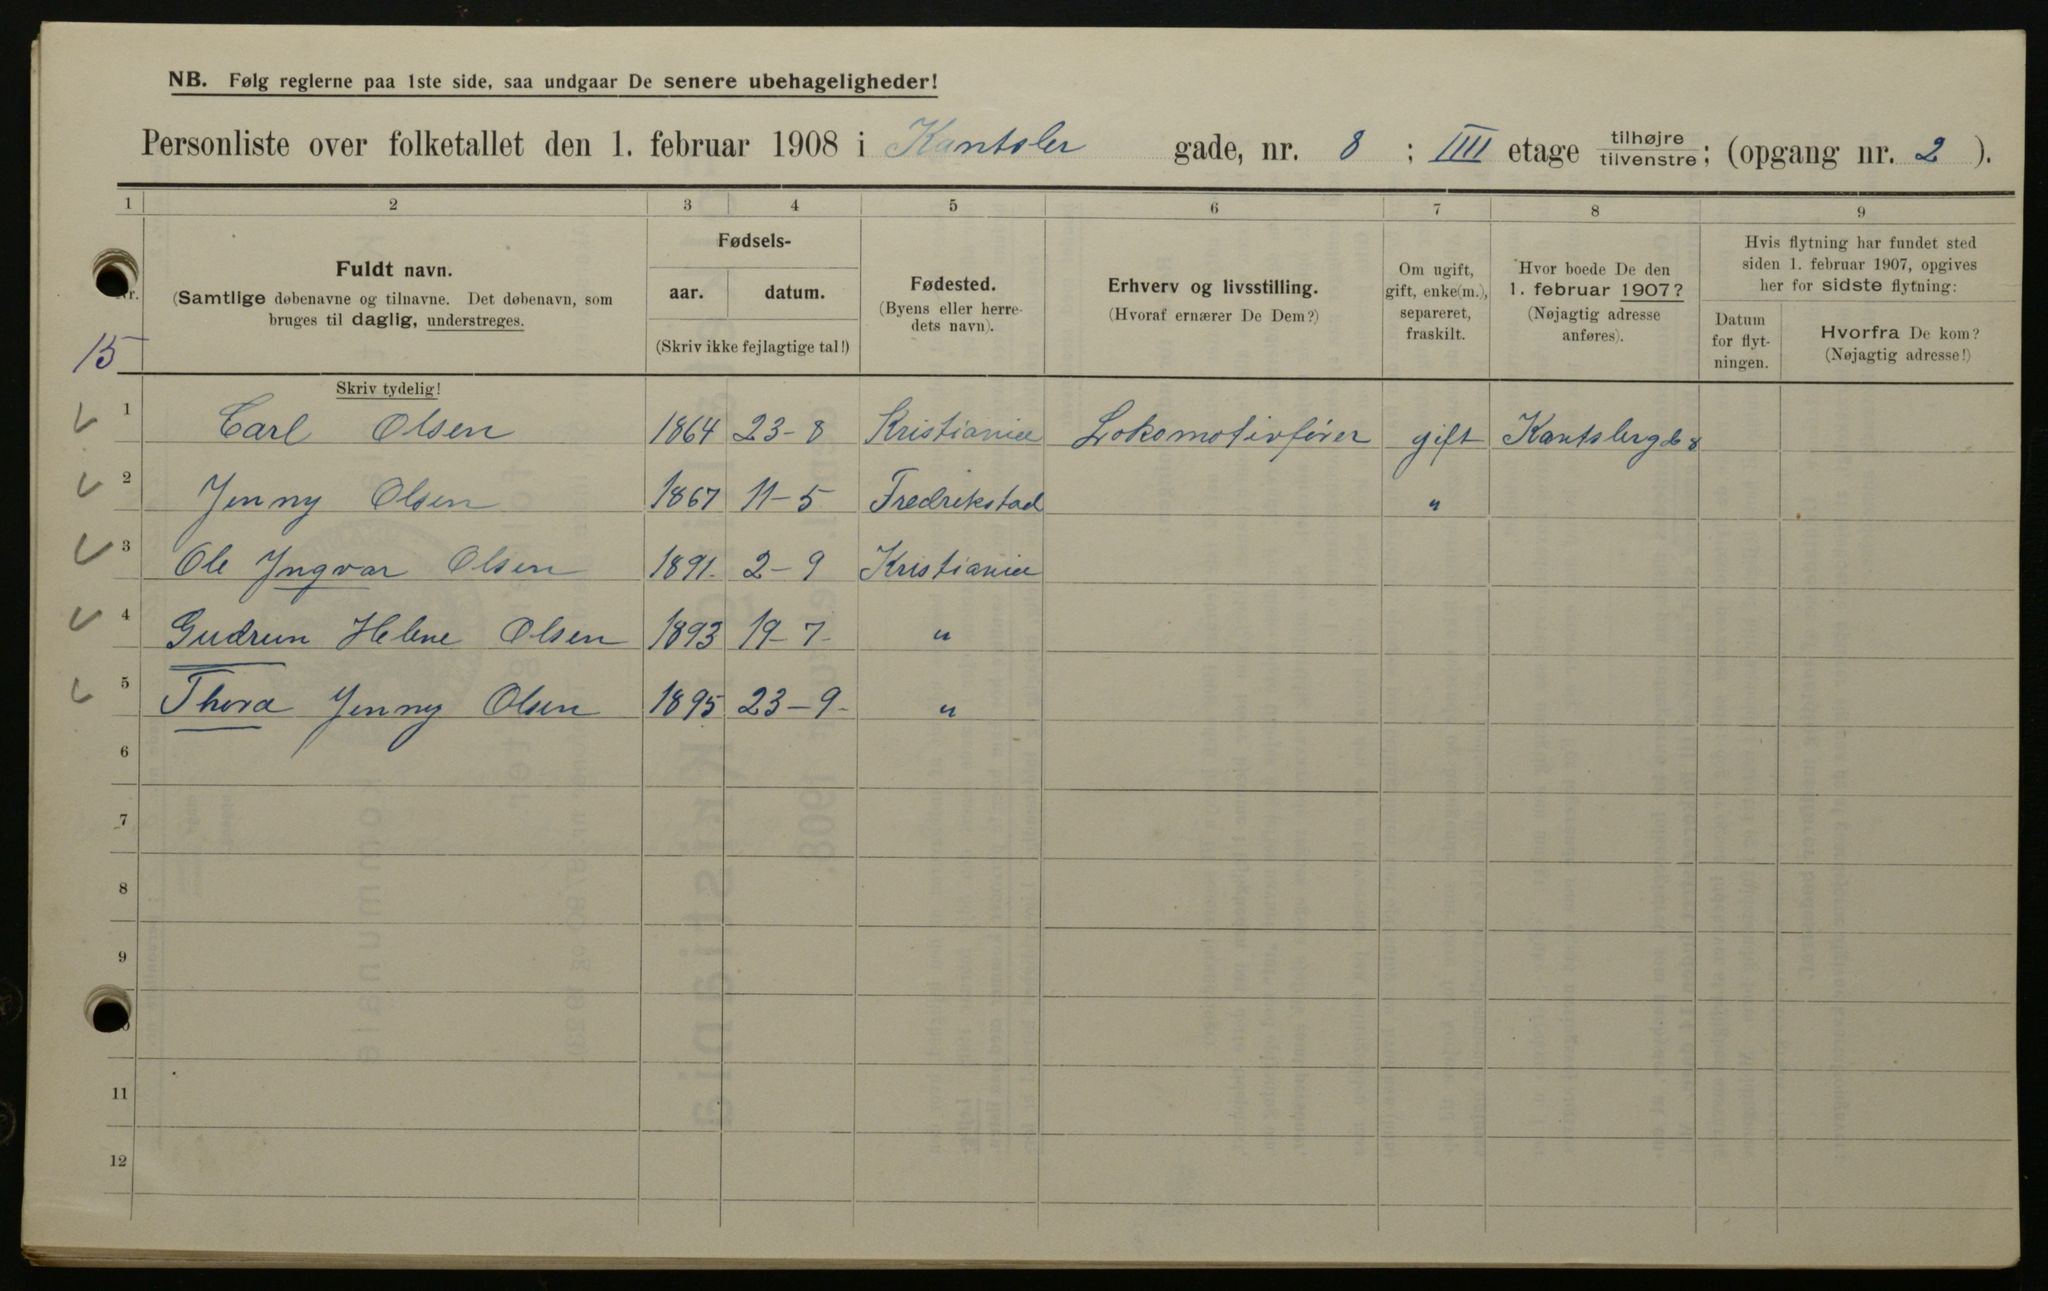 NB. Følg reglerne paa 1ste side, saa undgaar De senere ubehageligheder!
Personliste over folketallet den 1. februar 1908 i Kantsler gade, nr. 8 ; IIII etage tilhøjre tilvenstre; (opgang nr. 2 ).
1 2 3 4 5 6 7 8 9
Nr.
15
Fuldt navn.
(Samtlige døbenavne og tilnavne. Det døbenavn, som
bruges til daglig, understreges.
Skriv tydelig!
Fødsels-
aar. datum.
(Skriv ikke fejlagtige tal!)
Fødested.
(Byens eller herre-
dets navn).
Erhverv og livsstilling.
(Hvoraf ernærer De Dem?)
Om ugift,
gift, enke(m.),
separeret,
fraskilt.
Hvor boede De den
1. februar 1907?
(Nøjagtig adresse
anføres).
Hvis flytning har fundet sted
siden 1. februar 1907, opgives
her for sidste flytning:
Datum
for flyt-
ningen.
Hvorfra De kom?
(Nøjagtig adresse!)
1 Carl Olsen 1864 23-8 Kristiania Lokomotivfører gift Kantslergd 8
2 Jenny Olsen 1867 11-5 Fredrikstad "
3 Ole Yngvar Olsen 1891. 2-9 Kristiania
4 Gudrun Helene Olsen 1893 19-7- "
5 Thora Jenny Olsen 1895 23-9- "
6
7
8
9
11
12